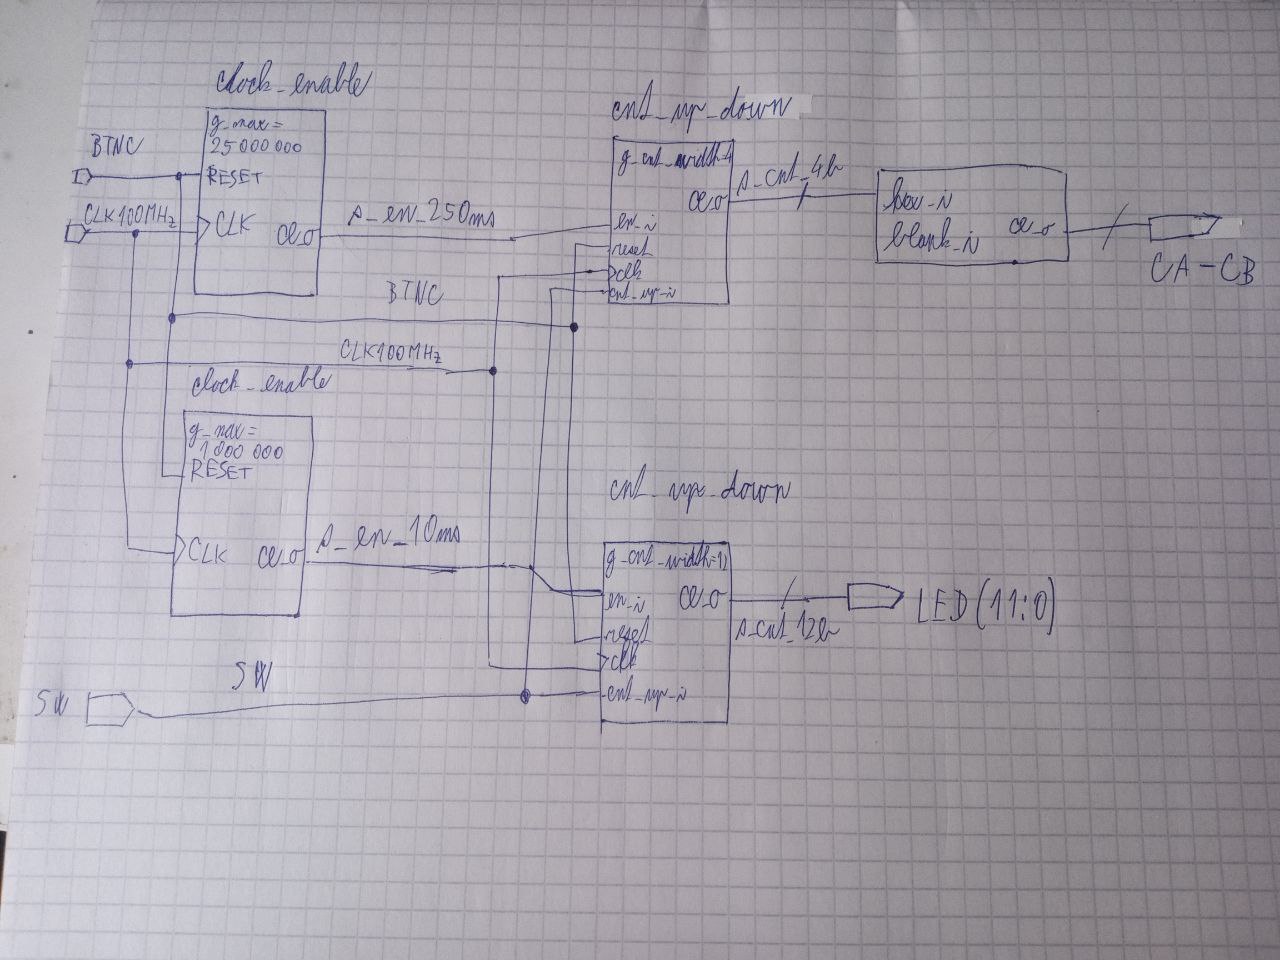 clock_enable
g_max=
25000 000
BTNC
RESET
CLK100MHz
CLK
ce_o
s_en_250ms
cnt_up_down
g_cnt_width=4
ce_o
s_cnt_4b
en_i
reset
clk
cnt_up_i
hex_i
blank_i
ce_o
CA-CB
BTNC
CLK100MHz
clock_enable
g_max=
1000 000
RESET
CLK
ce_o
s_en_10ms
cnt_up_down
g_cnt_width=12
ce_o
en_i
reset
clk
cnt_up_i
s_cnt_12b
LED(11:0)
SW
SW